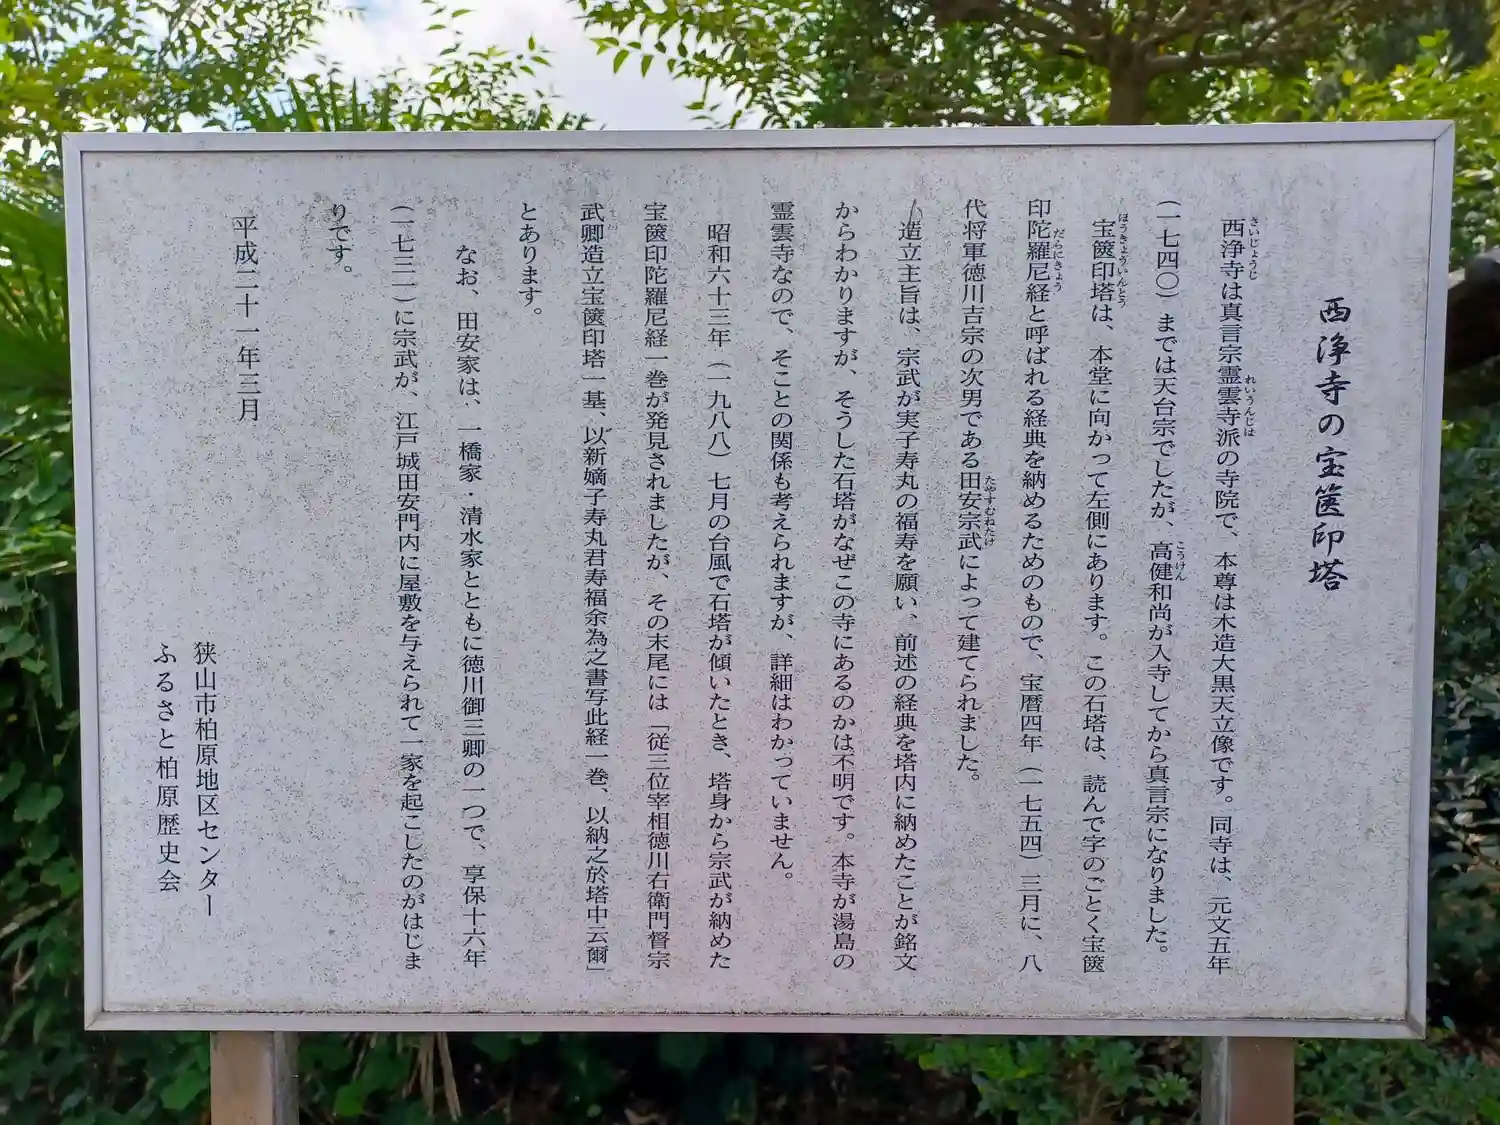 西浄寺の宝篋印塔
西浄寺は真言宗霊雲寺派の寺院で、本尊は木造大黒天立像です。同寺は、元文五年
さいじょうじ
れいうんじは
(一七四〇)までは天台宗でしたが、高健和尚が入寺してから真言宗になりました。
こうけん
宝篋印塔は、本堂に向かって左側にあります。この石塔は、読んで字のごとく宝篋
ほうきょういんとう
印陀羅尼経と呼ばれる経典を納めるためのもので、宝暦四年(一七五四)三月に、八
だらにきょう
代将軍徳川吉宗の次男である田安宗武によって建てられました。
たやすむねたけ
造立主旨は、宗武が実子寿丸の福寿を願い、前述の経典を塔内に納めたことが銘文
からわかりますが、そうした石塔がなぜこの寺にあるのかは不明です。本寺が湯島の
霊雲寺なので、そことの関係も考えられますが、詳細はわかっていません。
昭和六十三年(一九八八)七月の台風で石塔が傾いたとき、塔身から宗武が納めた
宝篋印陀羅尼経一巻が発見されましたが、その末尾には「従三位宰相徳川右衛門督宗
武卿造立宝篋印塔一基、以新嫡子寿丸君寿福余為之書写此経一巻、以納之於塔中云爾」
とあります。
なお、田安家は、一橋家・清水家とともに徳川御三卿の一つで、享保十六年
(一七三一)に宗武が、江戸城田安門内に屋敷を与えられて一家を起こしたのがはじま
りです。
平成二十一年三月
狭山市柏原地区センター
ふるさと柏原歴史会